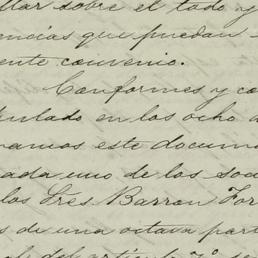 llar sobre el todo y
encias que puedan
ente convenio.
Conformes y co
tulado en los ocho a
ramos este docume
ada uno de los soc
los Sres Barron For
s de una octava part